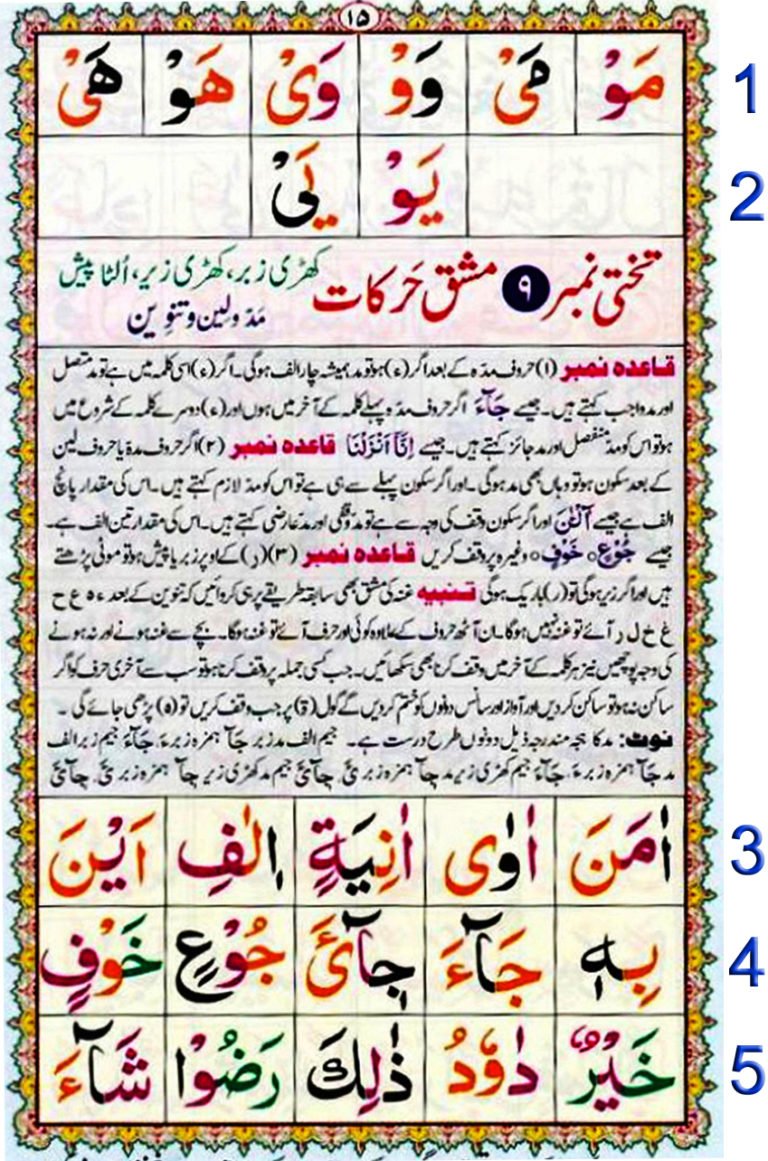 ۱۵
مَوْ مَیْ وَوْ وَیْ هَوْ هَیْ 1
یَوْ یَیْ 2
تختی نمبر ۹ مشق حَرکات کھڑی زبر، کھڑی زیر، اُلٹا پیش
مَدّ و لین و تنوین
قاعدہ نمبر (۱) حروف مدّہ کے بعد اگر (ء) ہو تو مد ہمیشہ چار الف ہوگی۔ اگر (ء) اسی کلمہ میں ہے تو مد متصل
اور مد واجب کہتے ہیں۔ جیسے جَآءَ اگر حروف مدّہ پہلے کلمہ کے آخر میں ہوں اور (ء) دوسرے کلمہ کے شروع میں
ہو تو اس کو مدّ منفصل اور مد جائز کہتے ہیں۔ جیسے اِنَّاۤ اَنْزَلْنَا قاعدہ نمبر (۲) اگر حروف مدہ یا حروف لین
کے بعد سکون ہو تو وہاں بھی مد ہوگی۔ اور اگر سکون پہلے سے ہی ہے تو اس کو مدّ لازم کہتے ہیں۔ اس کی مقدار پانچ
الف ہے جیسے آلْـٰٔنَ اور اگر سکون وقف کی وجہ سے ہے تو مدّ وقفی اور مدّ عارضی کہتے ہیں۔ اس کی مقدار تین الف ہے۔
جیسے جُوْعٍ ○ خَوْفٍ ○ وغیرہ پر وقف کریں قاعدہ نمبر (۳) (ر) کے اوپر زبر یا پیش ہو تو موٹی پڑھتے
ہیں اور اگر زیر ہوگی تو (ر) باریک ہوگی تنبیہ غنہ کی مشق بھی سابقہ طریقے پر ہی کروائیں کہ تنوین کے بعد ء ہ ع ح
غ خ ل ر آئے تو غنہ نہیں ہوگا۔ ان آٹھ حروف کے علاوہ کوئی اور حرف آئے تو غنہ ہوگا۔ بچے سے غنہ ہونے اور نہ ہونے
کی وجہ پوچھیں نیز ہر کلمہ کے آخر میں وقف کرنا بھی سکھائیں۔ جب کسی جملہ پر وقف کرنا ہو تو سب سے آخری حرف کو اگر
ساکن نہ ہو تو ساکن کر دیں اور آواز اور سانس دونوں کو ختم کر دیں گے گول (ۃ) پر جب وقف کریں تو (ہ) پڑھی جائے گی۔
نوٹ: مد کا ہجہ مندرجہ ذیل دونوں طرح درست ہے۔ جیم الف مد زبر جَآ ہمزہ زبر ءَ، جَآءَ جیم زبر الف
مد جَآ ہمزہ زبر ءَ، جَآءَ جیم کھڑی زیر مد جِآ ہمزہ زبر ئَ، جِآئَ جیم مد کھڑی زیر جِآ ہمزہ زبر ئَ، جِآئَ
اٰمَنَ اٰوٰی اٰنِیَةٍ اِلٰفِ اَیْنَ 3
بِهٖ جَآءَ جِآیْٓئَ جُوْعٍ خَوْفٍ 4
خَیْرٌ دٰوٗدُ ذٰلِكَ رَضُوْا شَآءَ 5